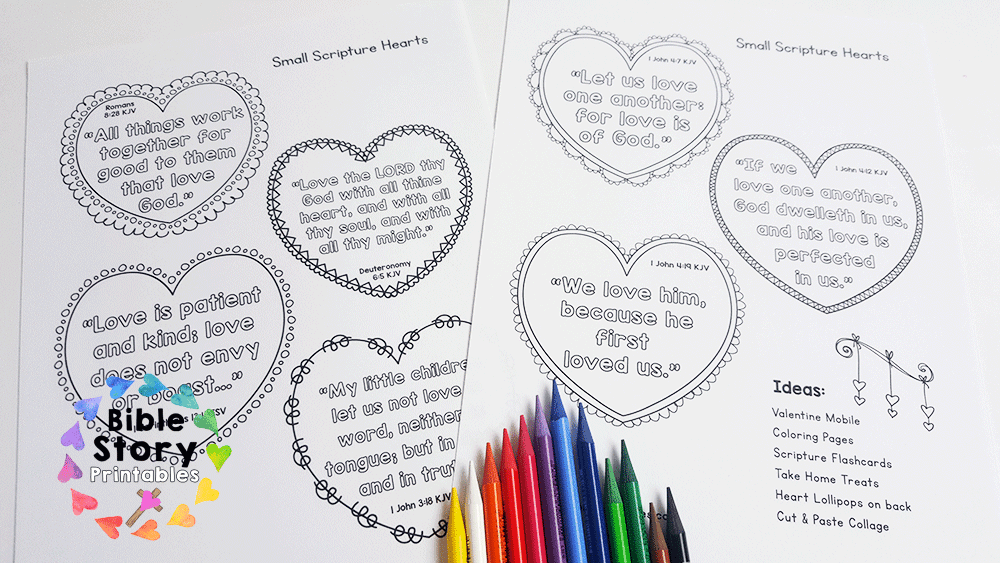 Small Scripture Hearts
Romans
8:28 KJV
“All things work
together for
good to them
that love
God.”
“Love the LORD thy
God with all thine
heart, and with all
thy soul, and with
all thy might.”
Deuteronomy
6:5 KJV
“Love is patient
and kind; love
does not envy
or boast...”
ESV
“My little childre
let us not love
word, neither
tongue; but in
and in trut
1 John 3:18 KJV
Bible
Story
Printables
Small Scripture Hearts
1 John 4:7 KJV
“Let us love
one another:
for love is
of God.”
1 John 4:12 KJV
“If we
love one another,
God dwelleth in us,
and his love is
perfected
in us.”
1 John 4:19 KJV
“We love him,
because he
first
loved us.”
Ideas:
Valentine Mobile
Coloring Pages
Scripture Flashcards
Take Home Treats
Heart Lollipops on back
Cut & Paste Collage